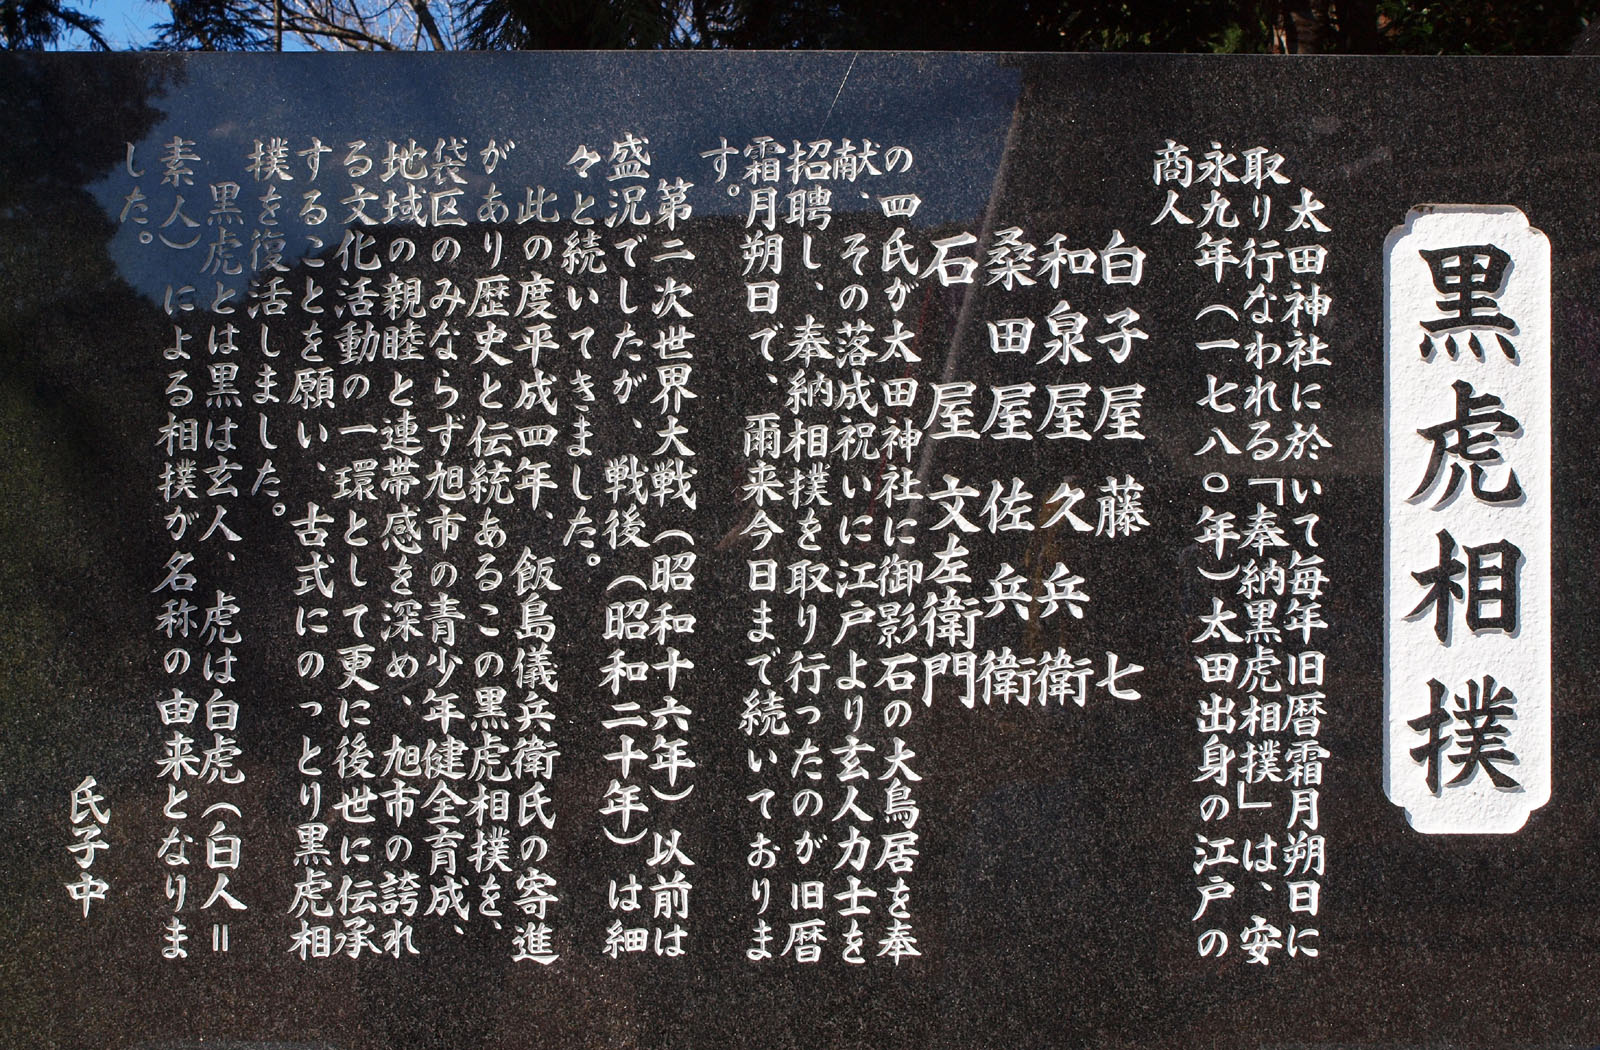 黒虎相撲
太田神社に於いて毎年旧暦霜月朔日に
取り行なわれる「奉納黒虎相撲」は、安
永九年(一七八〇年)太田出身の江戸の
商人
白子屋藤七
和泉屋久兵衛
桑田屋佐兵衛
石屋文左衛門
の四氏が太田神社に御影石の大鳥居を奉
献、その落成祝いに江戸より玄人力士を
招聘し、奉納相撲を取り行ったのが旧暦
霜月朔日で、爾来今日まで続いておりま
す。
第二次世界大戦(昭和十六年)以前は
盛況でしたが、戦後(昭和二十年)は細
々と続いてきました。
此の度平成四年、飯島儀兵衛氏の寄進
があり歴史と伝統あるこの黒虎相撲を、
袋区のみならず旭市の青少年健全育成、
地域の親睦と連帯感を深め、旭市の誇れ
る文化活動の一環として更に後世に伝承
することを願い、古式にのっとり黒虎相
撲を復活しました。
黒虎とは黒は玄人、虎は白虎(白人=
素人)による相撲が名称の由来となりま
した。
氏子中